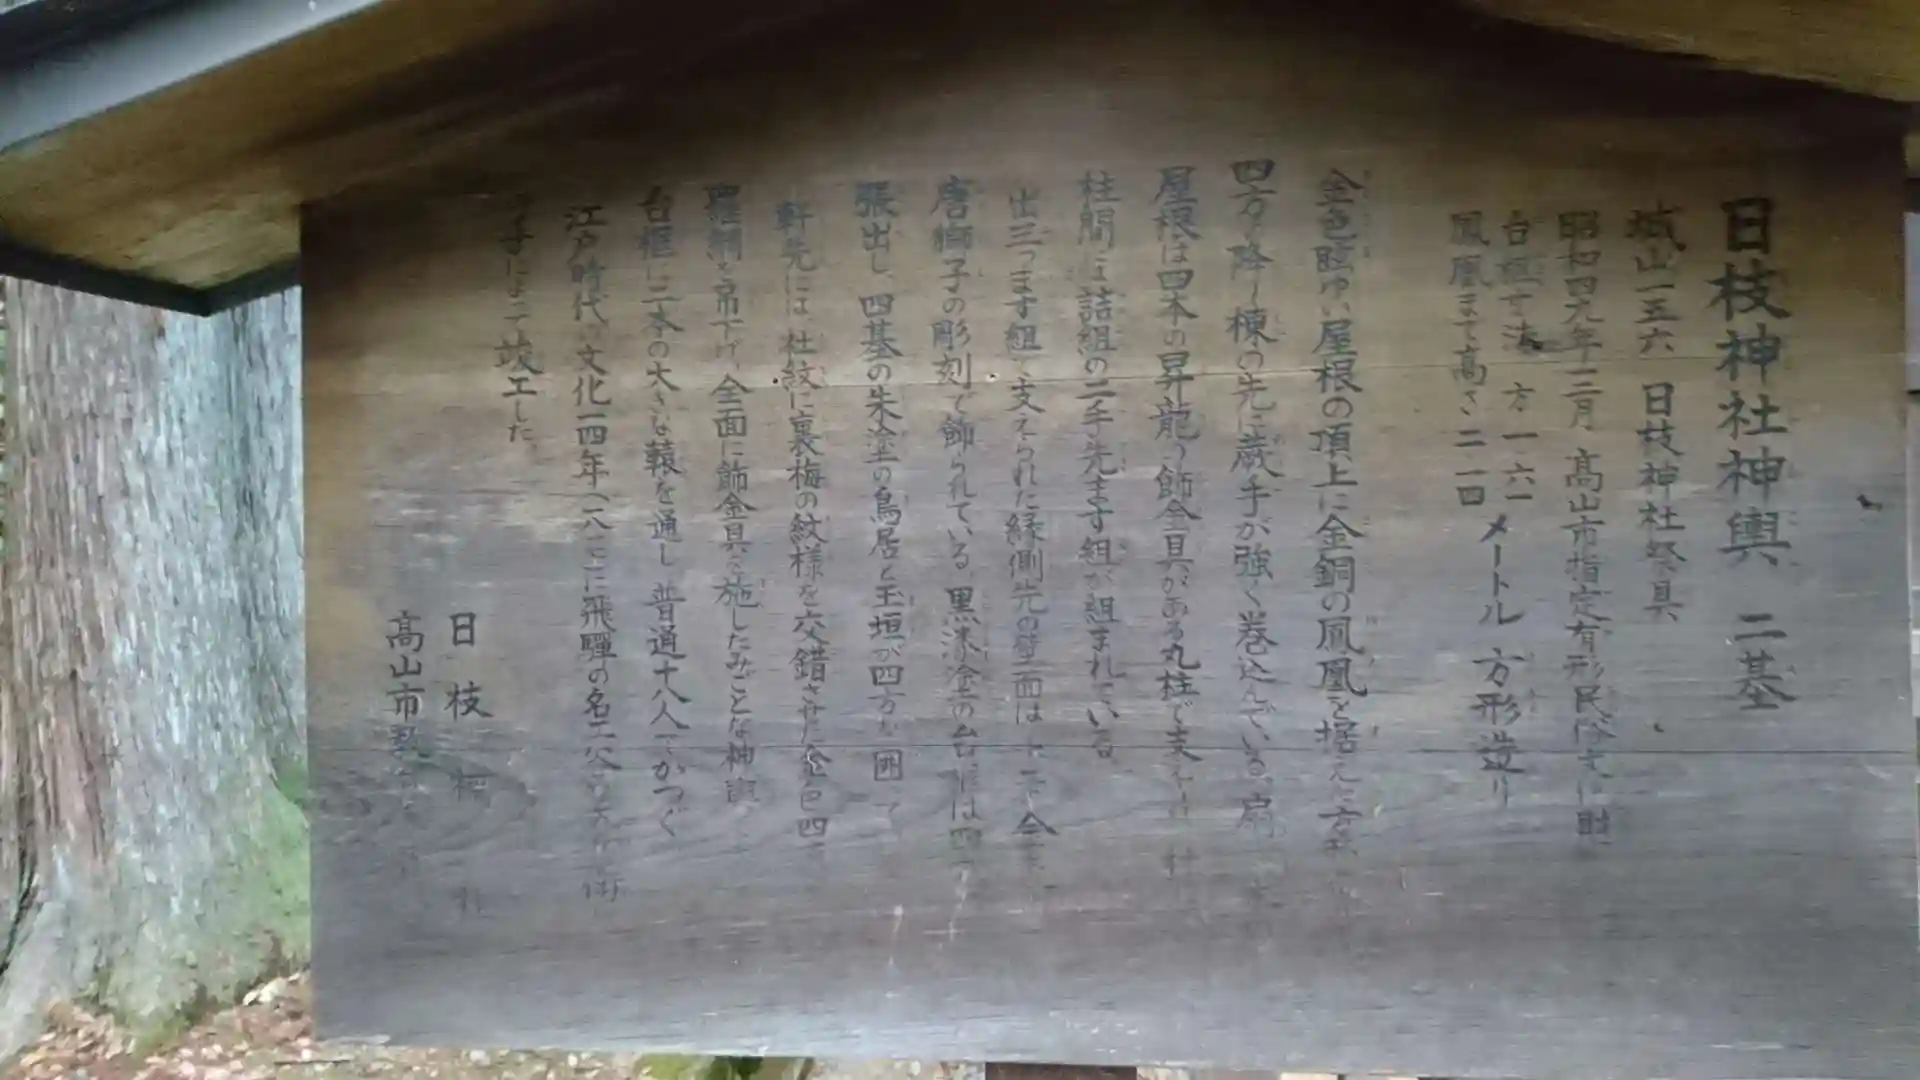 日枝神社神輿 二基
城山一五六 日枝神社祭具
昭和四九年二月 高山市指定有形民俗文化財
台框寸法 方 一六一
鳳凰まで高さ 二一四 メートル 方形造り
金色眩ゆい屋根の頂上に金銅の鳳凰を据えた方形
四方の降り棟の先に蔵手が強く巻込んでいる。扇
屋根は四本の昇龍の飾金具がある丸柱で支え
柱間には詰組の二手先ます組が組まれている
出三つます組で支えられた縁側先の壁面は上下全
唐獅子の彫刻で飾られている。黒漆塗の台框は四
張出し、四基の朱塗の鳥居と玉垣が四方を囲って
軒先には、社紋に裏梅の紋様を交錯させた金色四
羅網を吊下げ、全面に飾金具を施したみごとな神輿
台框に二本の大きな轅を通し 普通十八人でかつぐ
江戸時代の文化一四年(一八一七)に飛騨の名工谷口
手によって竣工した。
日枝神社
高山市教